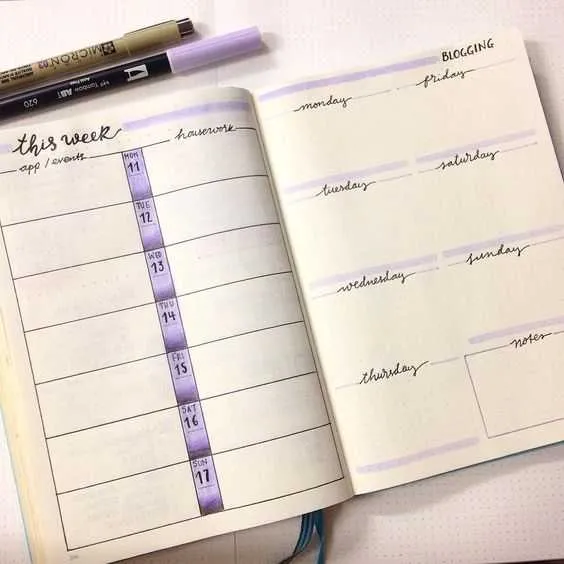 MICRON 03
620
Tombow ABT
this week
app / events
housework
MON
11
TUE
12
WED
13
THU
14
FRI
15
SAT
16
SUN
17
BLOGGING
monday
friday
tuesday
saturday
wednesday
sunday
thursday
notes